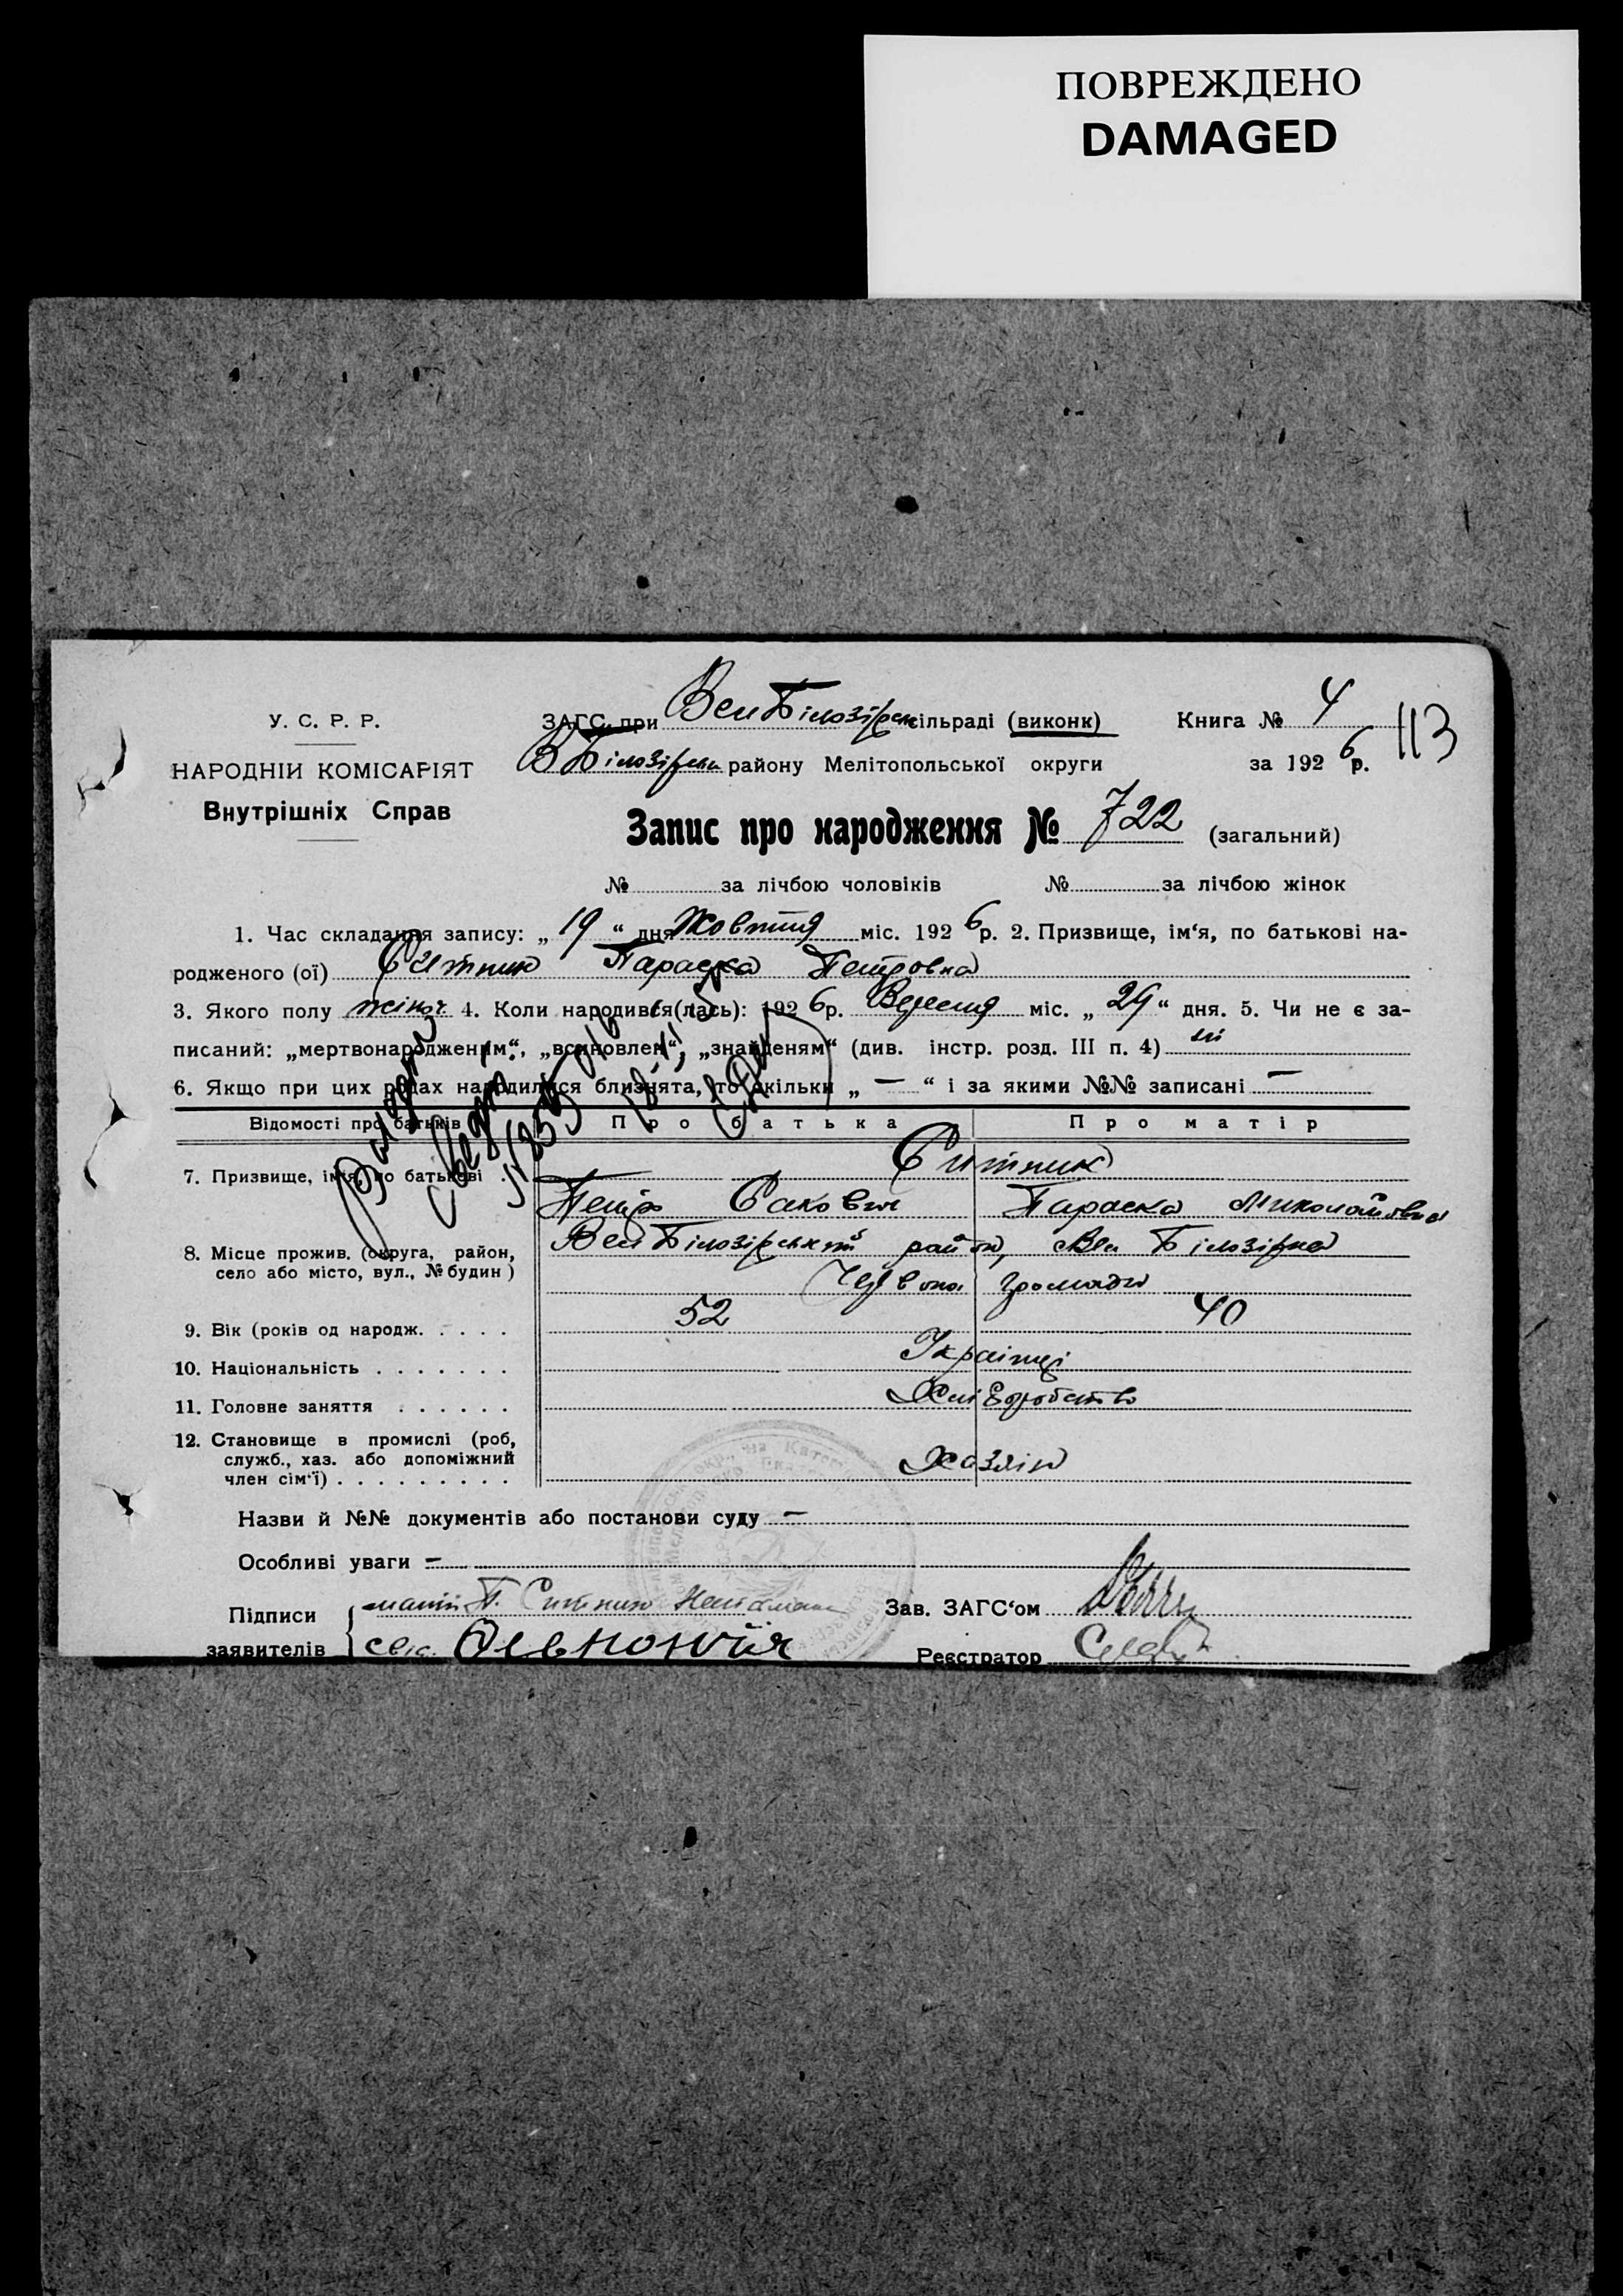 ПОВРЕЖДЕНО
DAMAGED
У. С. Р. Р.
НАРОДНІЙ КОМІСАРІЯТ
Внутрішніх Справ
ЗАГС при ВелБілозірск сільраді (виконк)
ВБілозірськ району Мелітопольської округи
Книга № 4
за 1926 р.
113
Запис про народження № 722 (загальний)
№ за лічбою чоловіків № за лічбою жінок
1. Час складання запису: „ 19 “ дня Жовтня міс. 1926 р. 2. Призвище, ім‘я, по батькові на-
родженого (ої) Ситник Параска Петровна
3. Якого полу жіноч 4. Коли народився(лась): 1926 р. Вересня міс. „ 29 “ дня. 5. Чи не є за-
писаний: „мертвонародженім“, „всиновлен“, „знайденям“ (див. інстр. розд. III п. 4) ні
6. Якщо при цих родах народилися близнята, то скільки „ — “ і за якими №№ записані —
Відомості про батьків Про батька Про матір
7. Призвище, ім‘я, по батькові . Ситник
Петро Сакович Параска Миколаївна
8. Місце прожив. (округа, район,
село або місто, вул., № будин)
ВелБілозірський район, Вел Білозірка
Червона громада
9. Вік (років од народж. . . . . 52 40
10. Національність . . . . . . . Українці
11. Головне заняття . . . . . . Хліборобство
12. Становище в промислі (роб,
служб., хаз. або допоміжний
член сім‘ї) . . . . . . . . . Хазяїн
Назви й №№ документів або постанови суду —
Особливі уваги —
Підписи
заявителів
мати П. Ситник
Зав. ЗАГС‘ом
Реєстратор